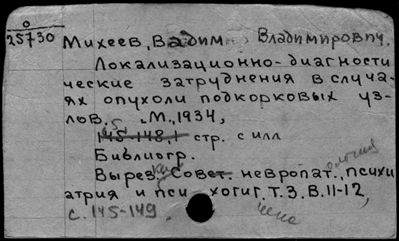 0
25730
Михеев, Вадим Владимирович.
Локализационно-диагности
ческие затруднения в случа-
ях опухоли подкорковых уз-
лов. М., 1934,
145-148,1 стр. с илл
Библиогр.
Вырез. Совет. невропат., психи
атрия и пси хогиг, Т.3. В.11-12,
с. 145-149.